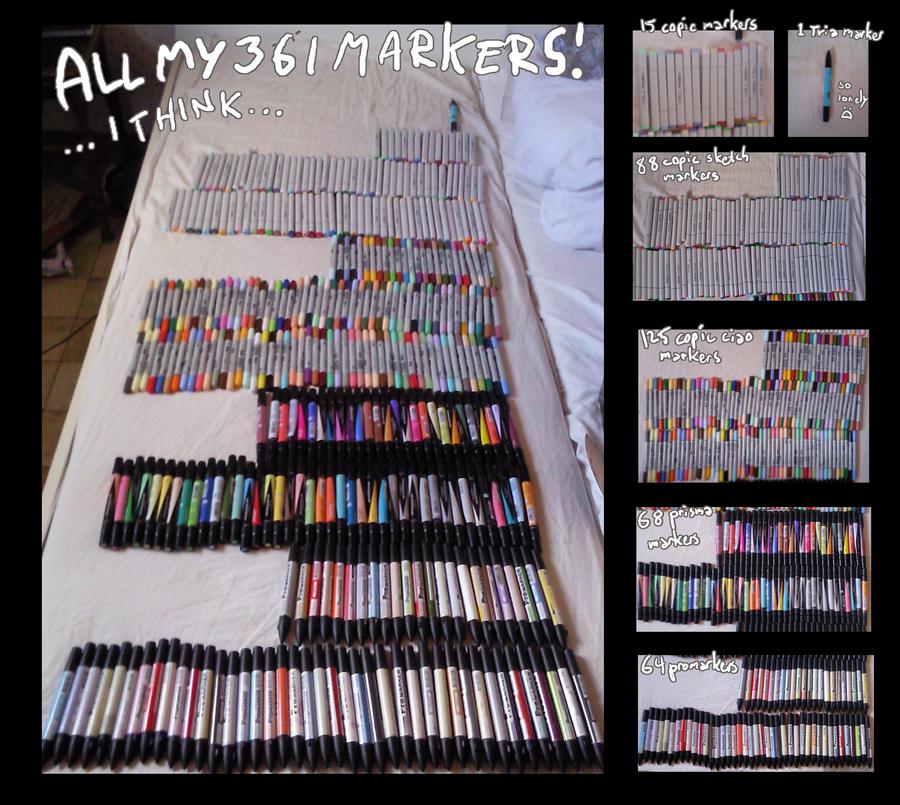 ALL MY 361 MARKERS!
... I THINK...
15 copic markers
1 Tria marker
so
lonely
88 copic sketch
markers
125 copic ciao
markers
68 prisma
markers
64 promarkers